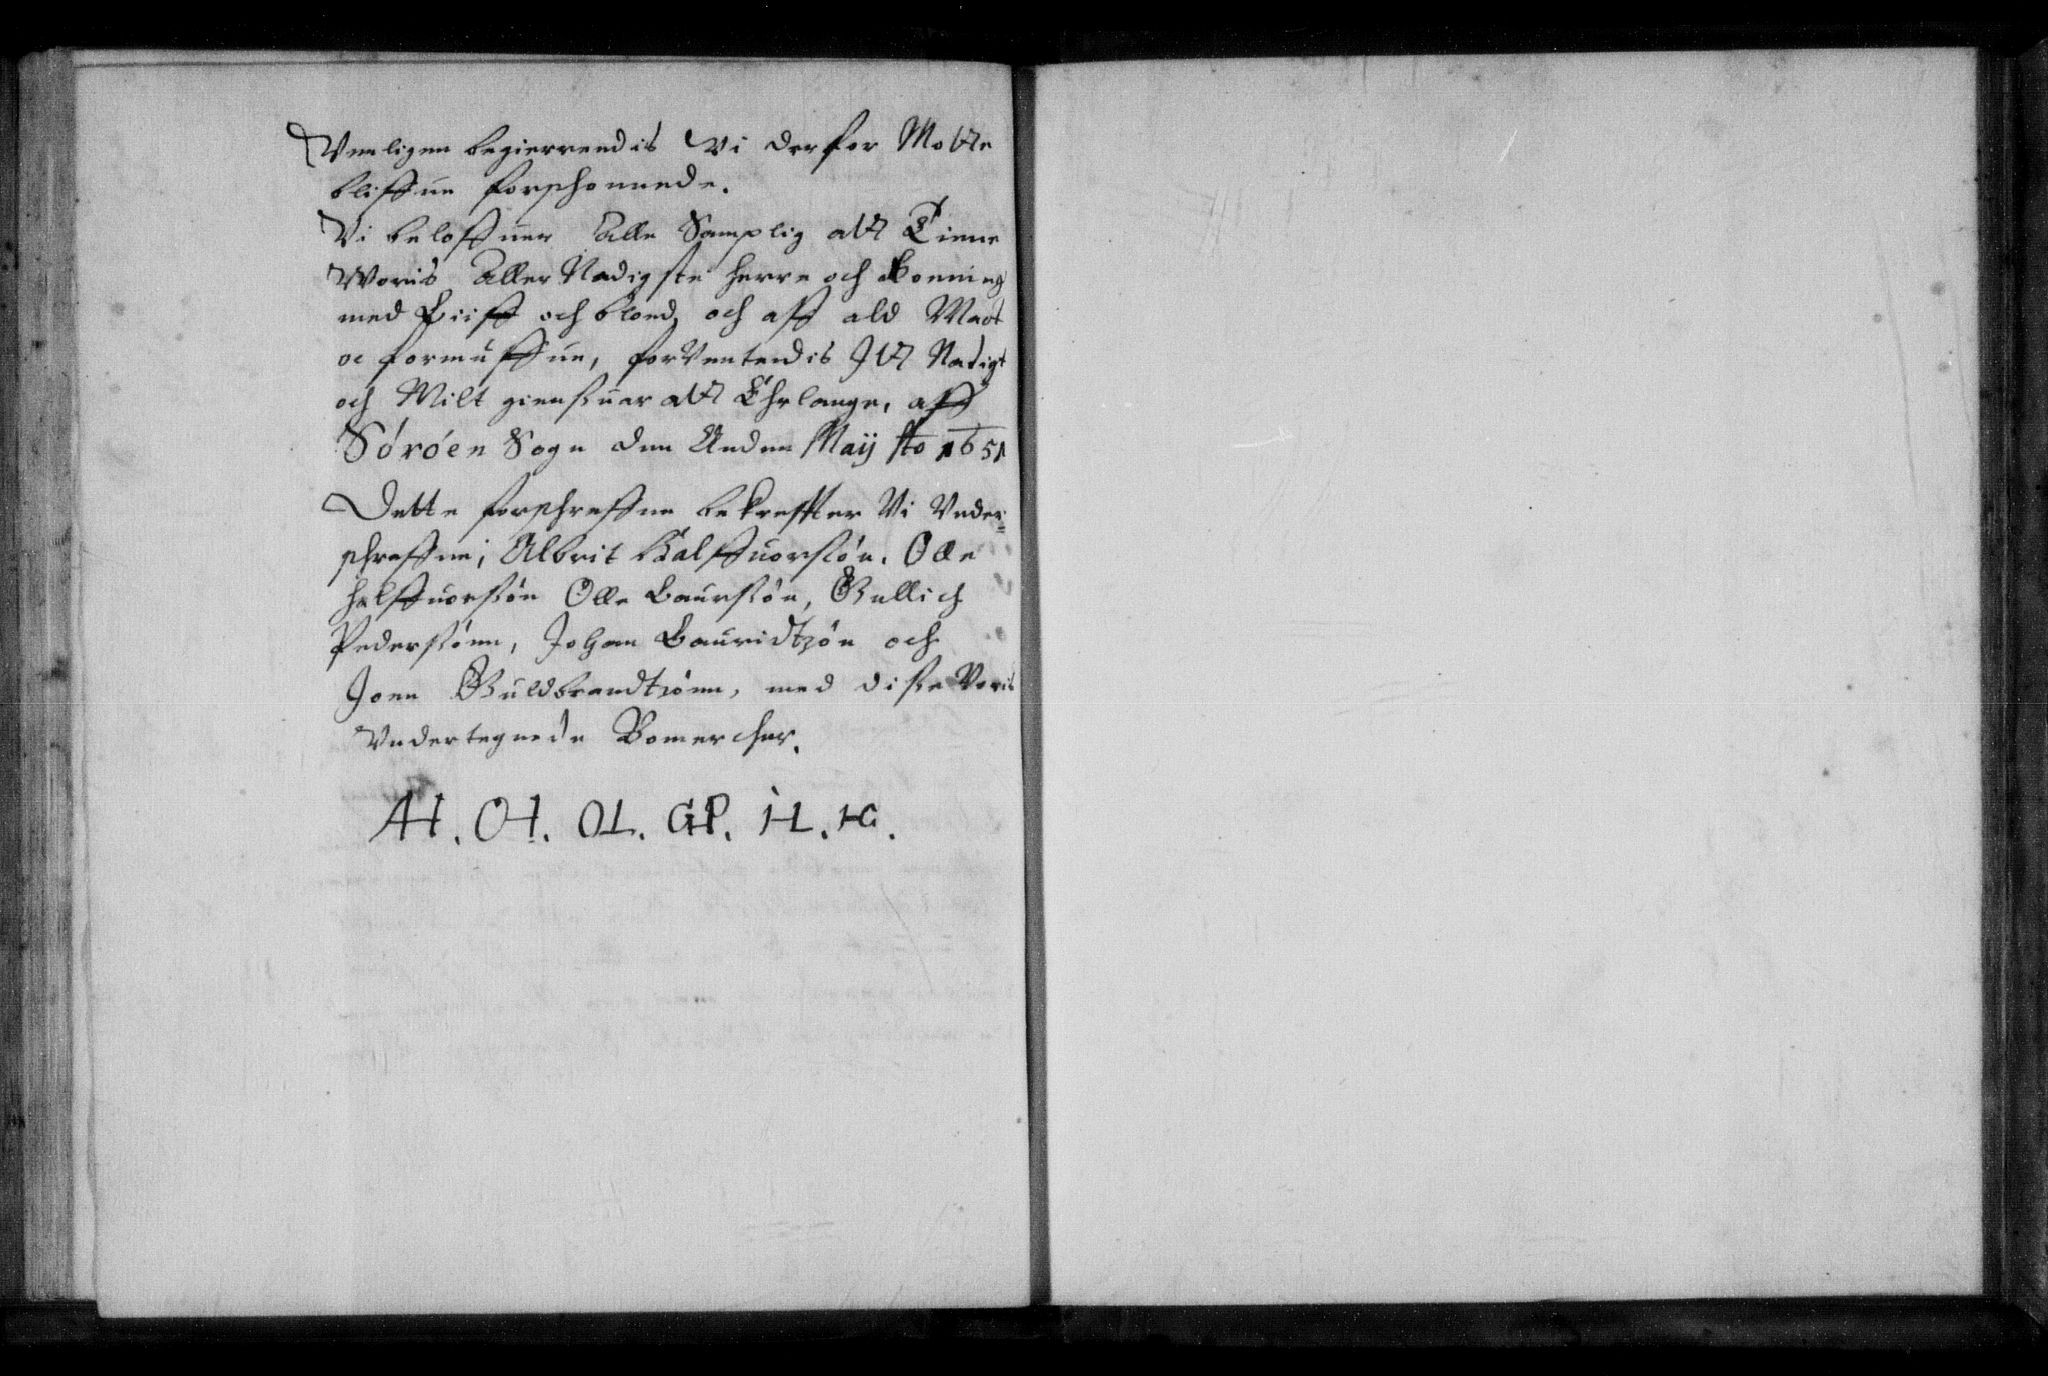 Venligen begierrendis Vi derfor Motte
bliffue forschonnede.
Vi beloffuer Alle Samplig att Tiene
Woris Aller Nadigste herre och Konning
med Liiff och bloed, och aff ald Magt
oc formuffue, forVentendis Itt Nadigt
och Milt giensuar att Ehrlange, aff
Sóróen Sogn den Anden Maij Ao 1651
Dette forschreffne bekreffter Vi Vnder=
schreffne, Albrit Halffuorsión. Olle
halffuorsión Olle Laursión, Gullich
Pedersiónn, Johan Lauridtzón och
Joen Guldbrandtzónn, med disse Voris
Vndertegnede Bomercher.
AH. OH. OL. GP. IL. IG.